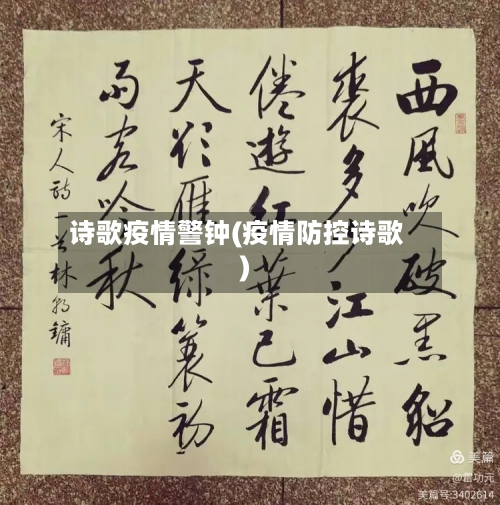 西風吹破黑貂
裘多少江山惜
倦遊紅葉已霜
天欲雁綠蓑初
雨客吟秋
宋人詩一首林
鏞
诗歌疫情警钟(疫情防控诗歌
)
美篇
@霍功元
美篇号:3402614